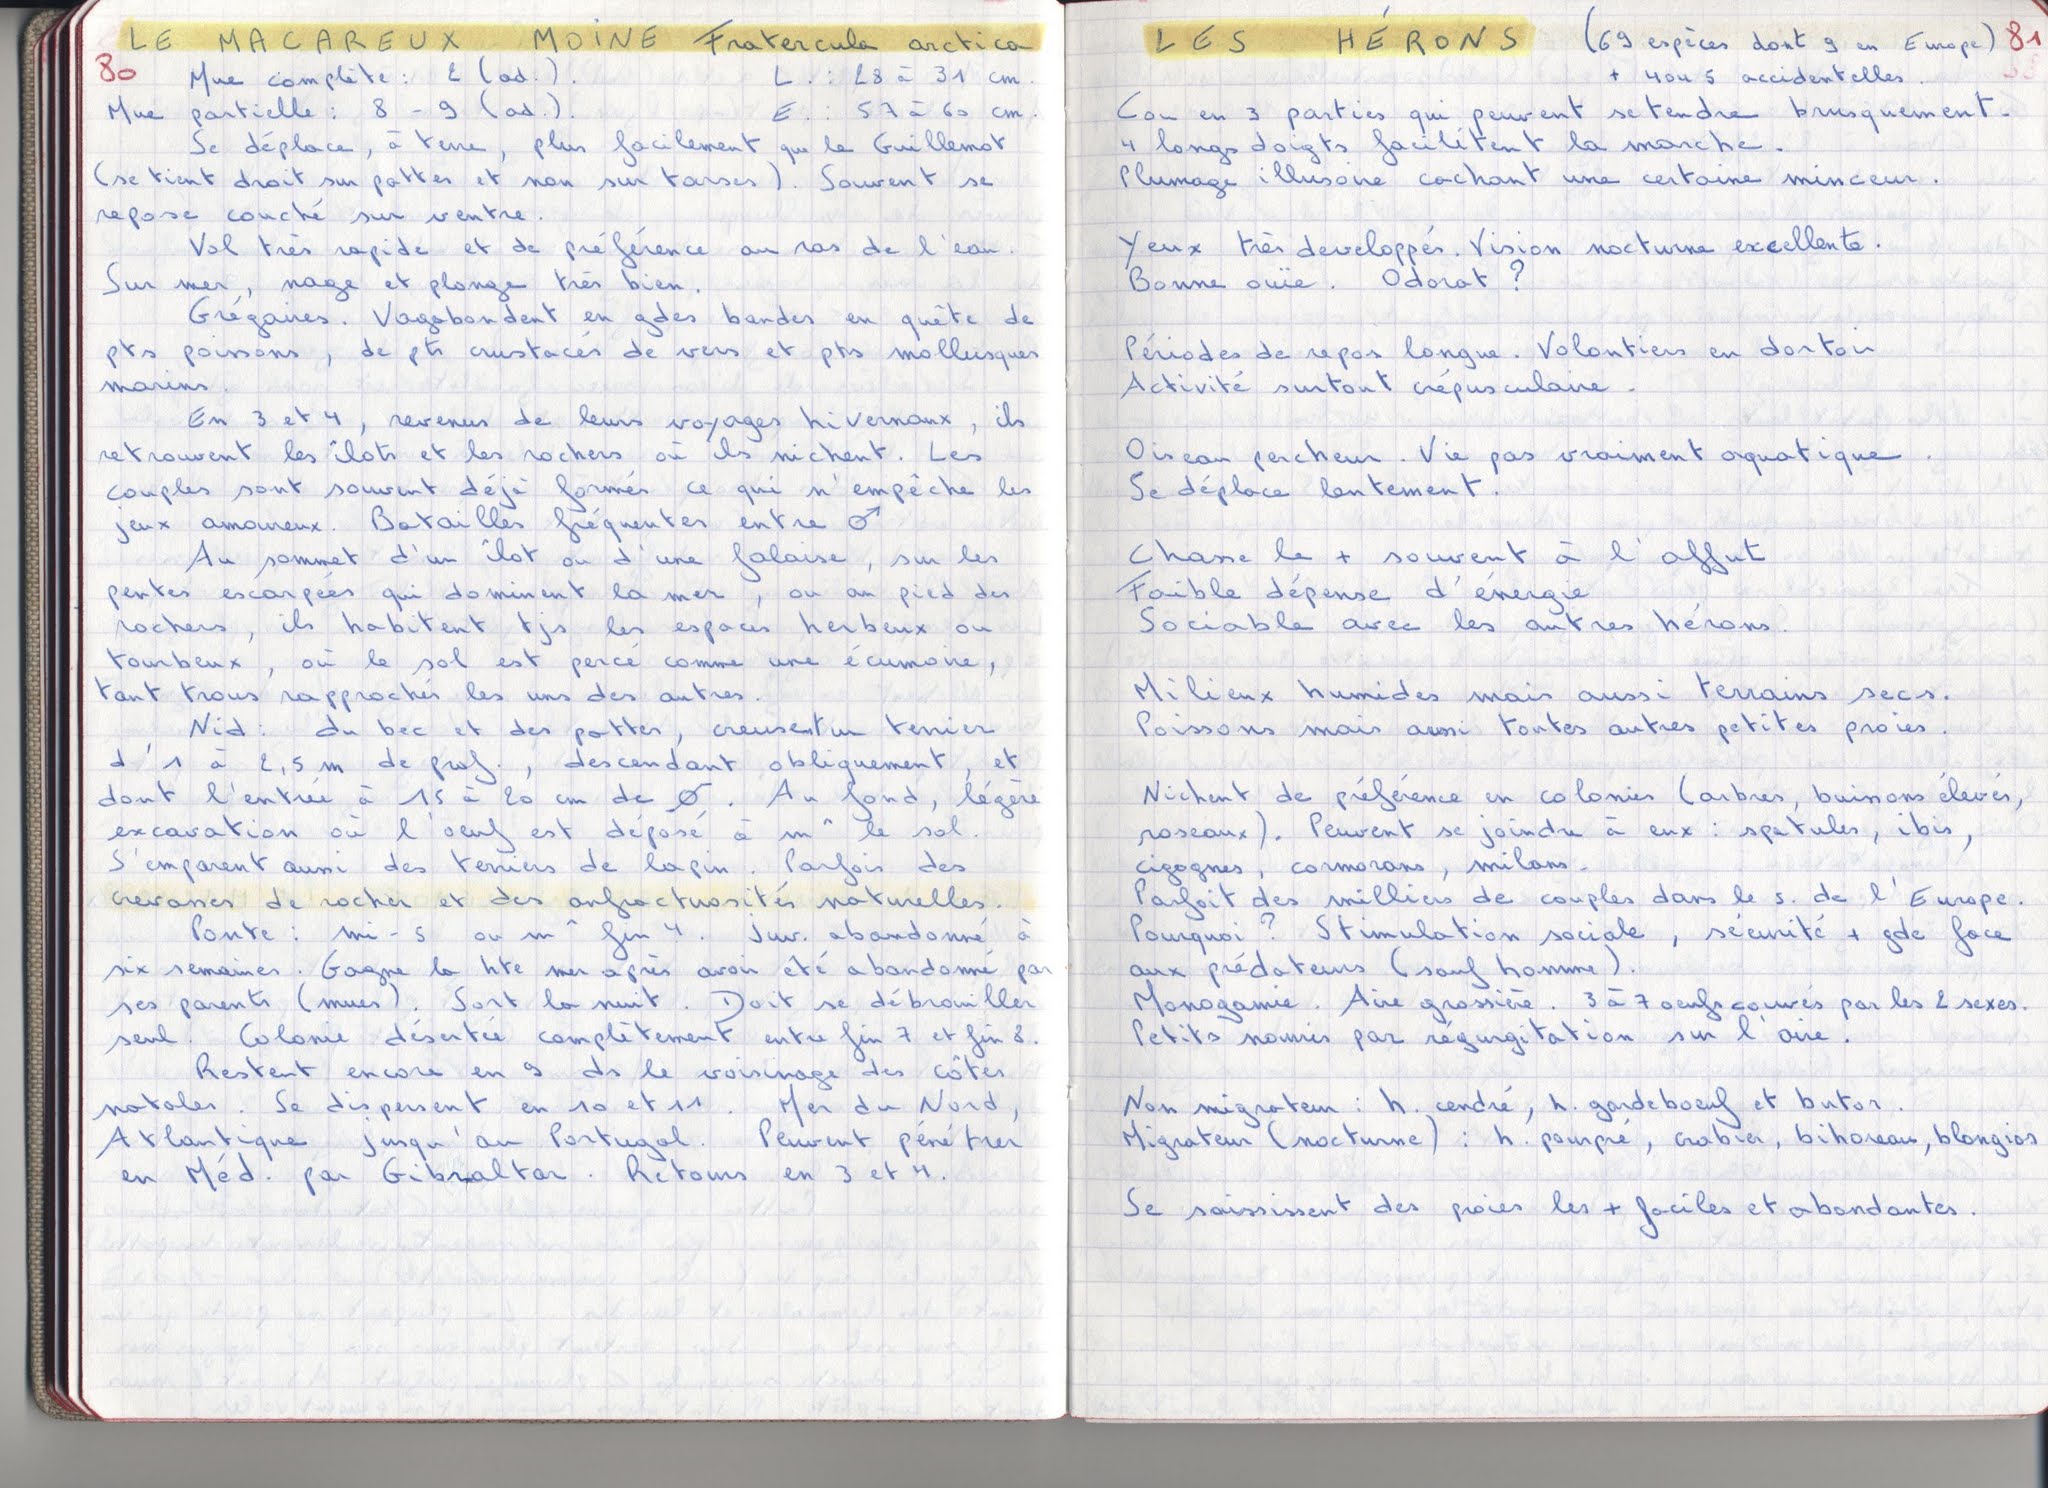 LE MACAREUX MOINE Fratercula arctica
80 Mue complète : 2 (ad.). L. : 28 à 31 cm.
Mue partielle : 8 - 9 (ad.). E. : 57 à 60 cm.
Se déplace, à terre, plus facilement que le Guillemot
(se tient droit sur pattes et non sur tarses). Souvent se
repose couché sur ventre.
Vol très rapide et de préférence au ras de l'eau.
Sur mer, nage et plonge très bien.
Grégaires. Vagabondent en gdes bandes en quête de
pts poissons, de pts crustacés de vers et pts mollusques
marins.
En 3 et 4, revenus de leurs voyages hivernaux, ils
retrouvent les îlots et les rochers où ils nichent. Les
couples sont souvent déjà formés ce qui n'empêche les
jeux amoureux. Batailles fréquentes entre ♂
Au sommet d'un îlot ou d'une falaise, sur les
pentes escarpées qui dominent la mer, ou au pied des
rochers, ils habitent tjs les espaces herbeux ou
tourbeux, où le sol est percé comme une écumoire,
tant trous rapprochés les uns des autres.
Nid : du bec et des pattes, creusent un terrier
d'1 à 2,5 m de prof., descendant obliquement, et
dont l'entrée à 15 à 20 cm de Ø. Au fond, légère
excavation où l'oeuf est déposé à m^ le sol.
S'emparent aussi des terriers de lapin. Parfois des
crevasses de rocher et des anfractuosités naturelles.
Ponte : mi-5 ou m^ fin 4. Juv. abandonné à
six semaines. Gagne la hte mer après avoir été abandonné par
ses parents (mues). Sort la nuit. Doit se débrouiller
seul. Colonie désertée complètement entre fin 7 et fin 8.
Restent encore en 9 ds le voisinage des côtes
natales. Se dispersent en 10 et 11. Mer du Nord,
Atlantique jusqu'au Portugal. Peuvent pénétrer
en Méd. par Gibraltar. Retours en 3 et 4.
LES HÉRONS (69 espèces dont 9 en Europe) 81
+ 4 ou 5 accidentelles.
Cou en 3 parties qui peuvent se tendre brusquement.
4 longs doigts facilitent la marche.
Plumage illusoire cachant une certaine minceur.
Yeux très developpés. Vision nocturne excellente.
Bonne ouïe. Odorat ?
Périodes de repos longue. Volontiers en dortoir
Activité surtout crépusculaire.
Oiseau percheur. Vie pas vraiment aquatique.
Se déplace lentement.
Chasse le + souvent à l'affut
Faible dépense d'énergie
Sociable avec les autres hérons.
Milieux humides mais aussi terrains secs.
Poissons mais aussi toutes autres petites proies.
Nichent de préférence en colonies (arbres, buissons élevés,
roseaux). Peuvent se joindre à eux : spatules, ibis,
cigognes, cormorans, milans.
Parfoit des milliers de couples dans le s. de l'Europe.
Pourquoi ? Stimulation sociale, sécurité + gde face
aux prédateurs (sauf homme).
Monogamie. Aire grossière. 3 à 7 oeufs couvés par les 2 sexes.
Petits nourris par régurgitation sur l'aire.
Non migrateur : h. cendré, h. gardeboeuf et butor.
Migrateur (nocturne) : h. pourpré, crabier, bihoreau, blongios
Se saisissent des proies les + faciles et abondantes.